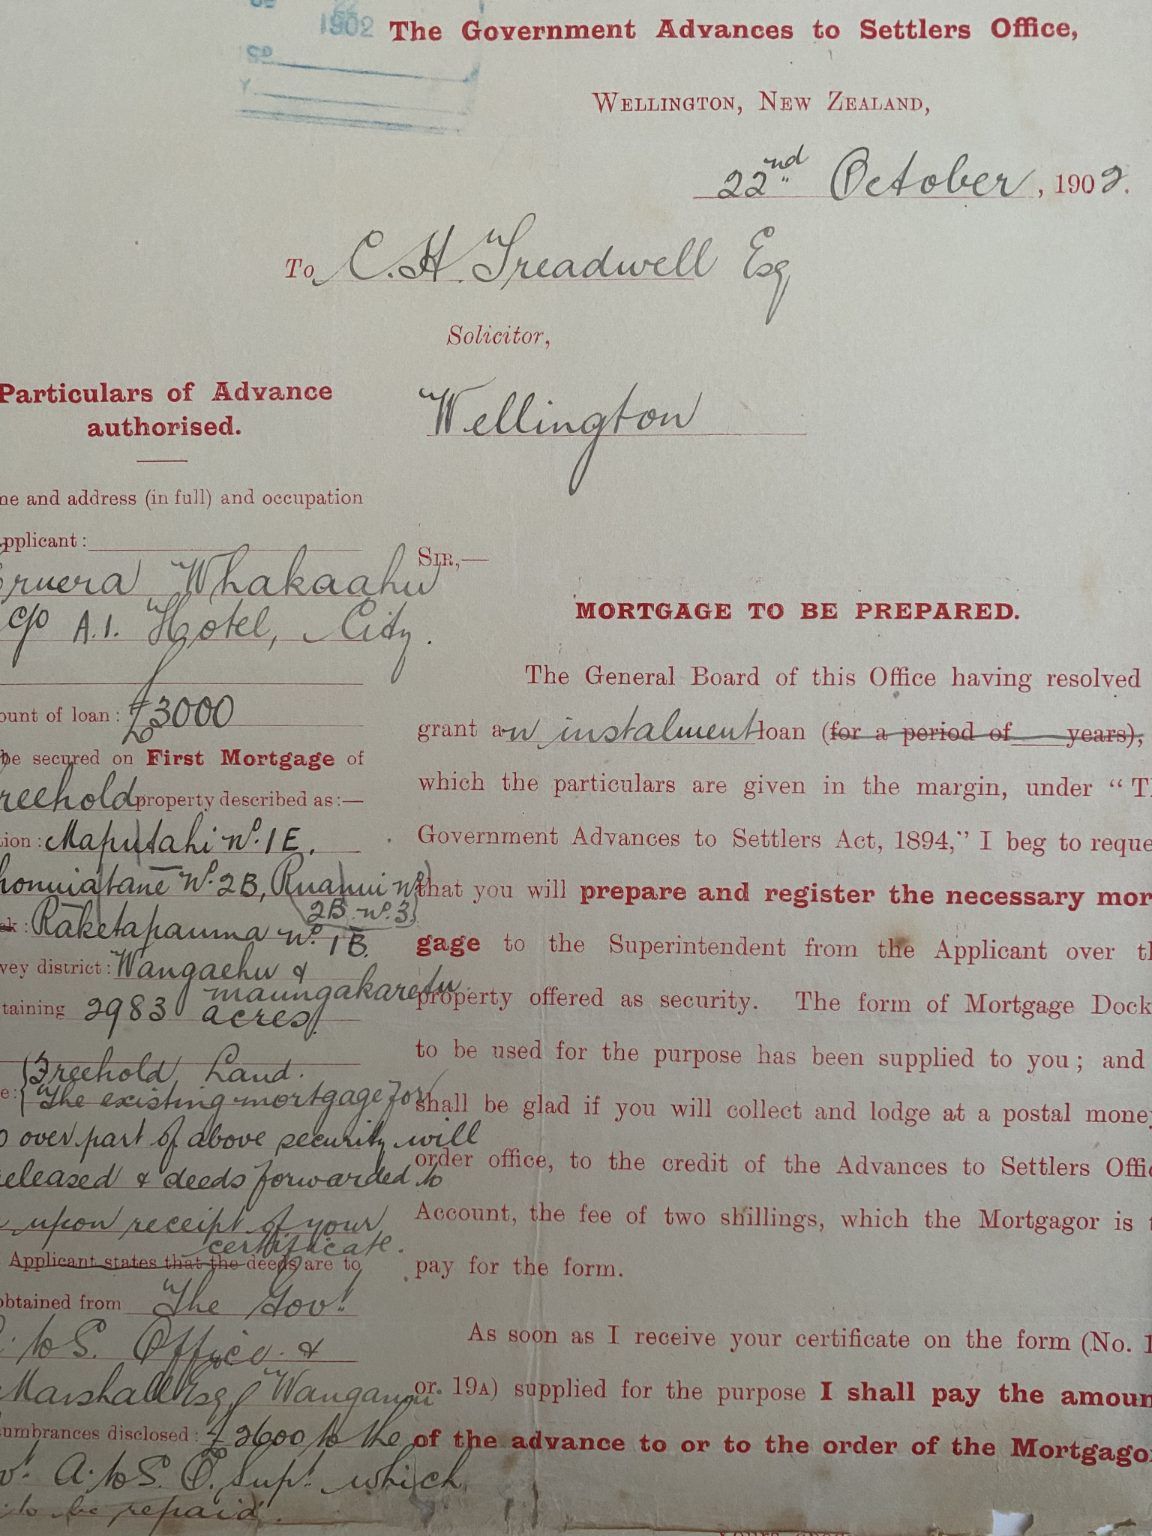 1902
The Government Advances to Settlers Office,
Wellington, New Zealand,
22nd October, 1902.
To C. H. Treadwell Esq
Solicitor,
Wellington
Particulars of Advance
authorised.
ne and address (in full) and occupation
pplicant:
ruera Whakaahu
c/o A.1. Hotel, City.
ount of loan: £3000
be secured on First Mortgage of
reehold property described as:—
ion: Maputahi No. 1E,
honuiatane No. 2B, Ruanui No.
2B No. 3
k: Raketapauma No. 1B.
vey district: Wangaehu &
maungakaretu
taining 2983 acres
Freehold Land.
e: The existing mortgage for
over part of above security will
eleased & deeds forwarded to
upon receipt of your
certificate.
Applicant states that the deeds are to
obtained from The Govt.
to S. Office &
Marshall Esq Wanganui
umbrances disclosed: £2600 to the
vt. A. to S. O. Supt. which
to be repaid.
Sir,—
MORTGAGE TO BE PREPARED.
The General Board of this Office having resolved
grant an instalment loan (for a period of years),
which the particulars are given in the margin, under “T
Government Advances to Settlers Act, 1894,” I beg to reque
that you will prepare and register the necessary mor-
gage to the Superintendent from the Applicant over t
property offered as security. The form of Mortgage Dock
to be used for the purpose has been supplied to you; and
shall be glad if you will collect and lodge at a postal money
order office, to the credit of the Advances to Settlers Offi
Account, the fee of two shillings, which the Mortgagor is t
pay for the form.
As soon as I receive your certificate on the form (No. 1
or 19A) supplied for the purpose I shall pay the amoun
of the advance to or to the order of the Mortgago